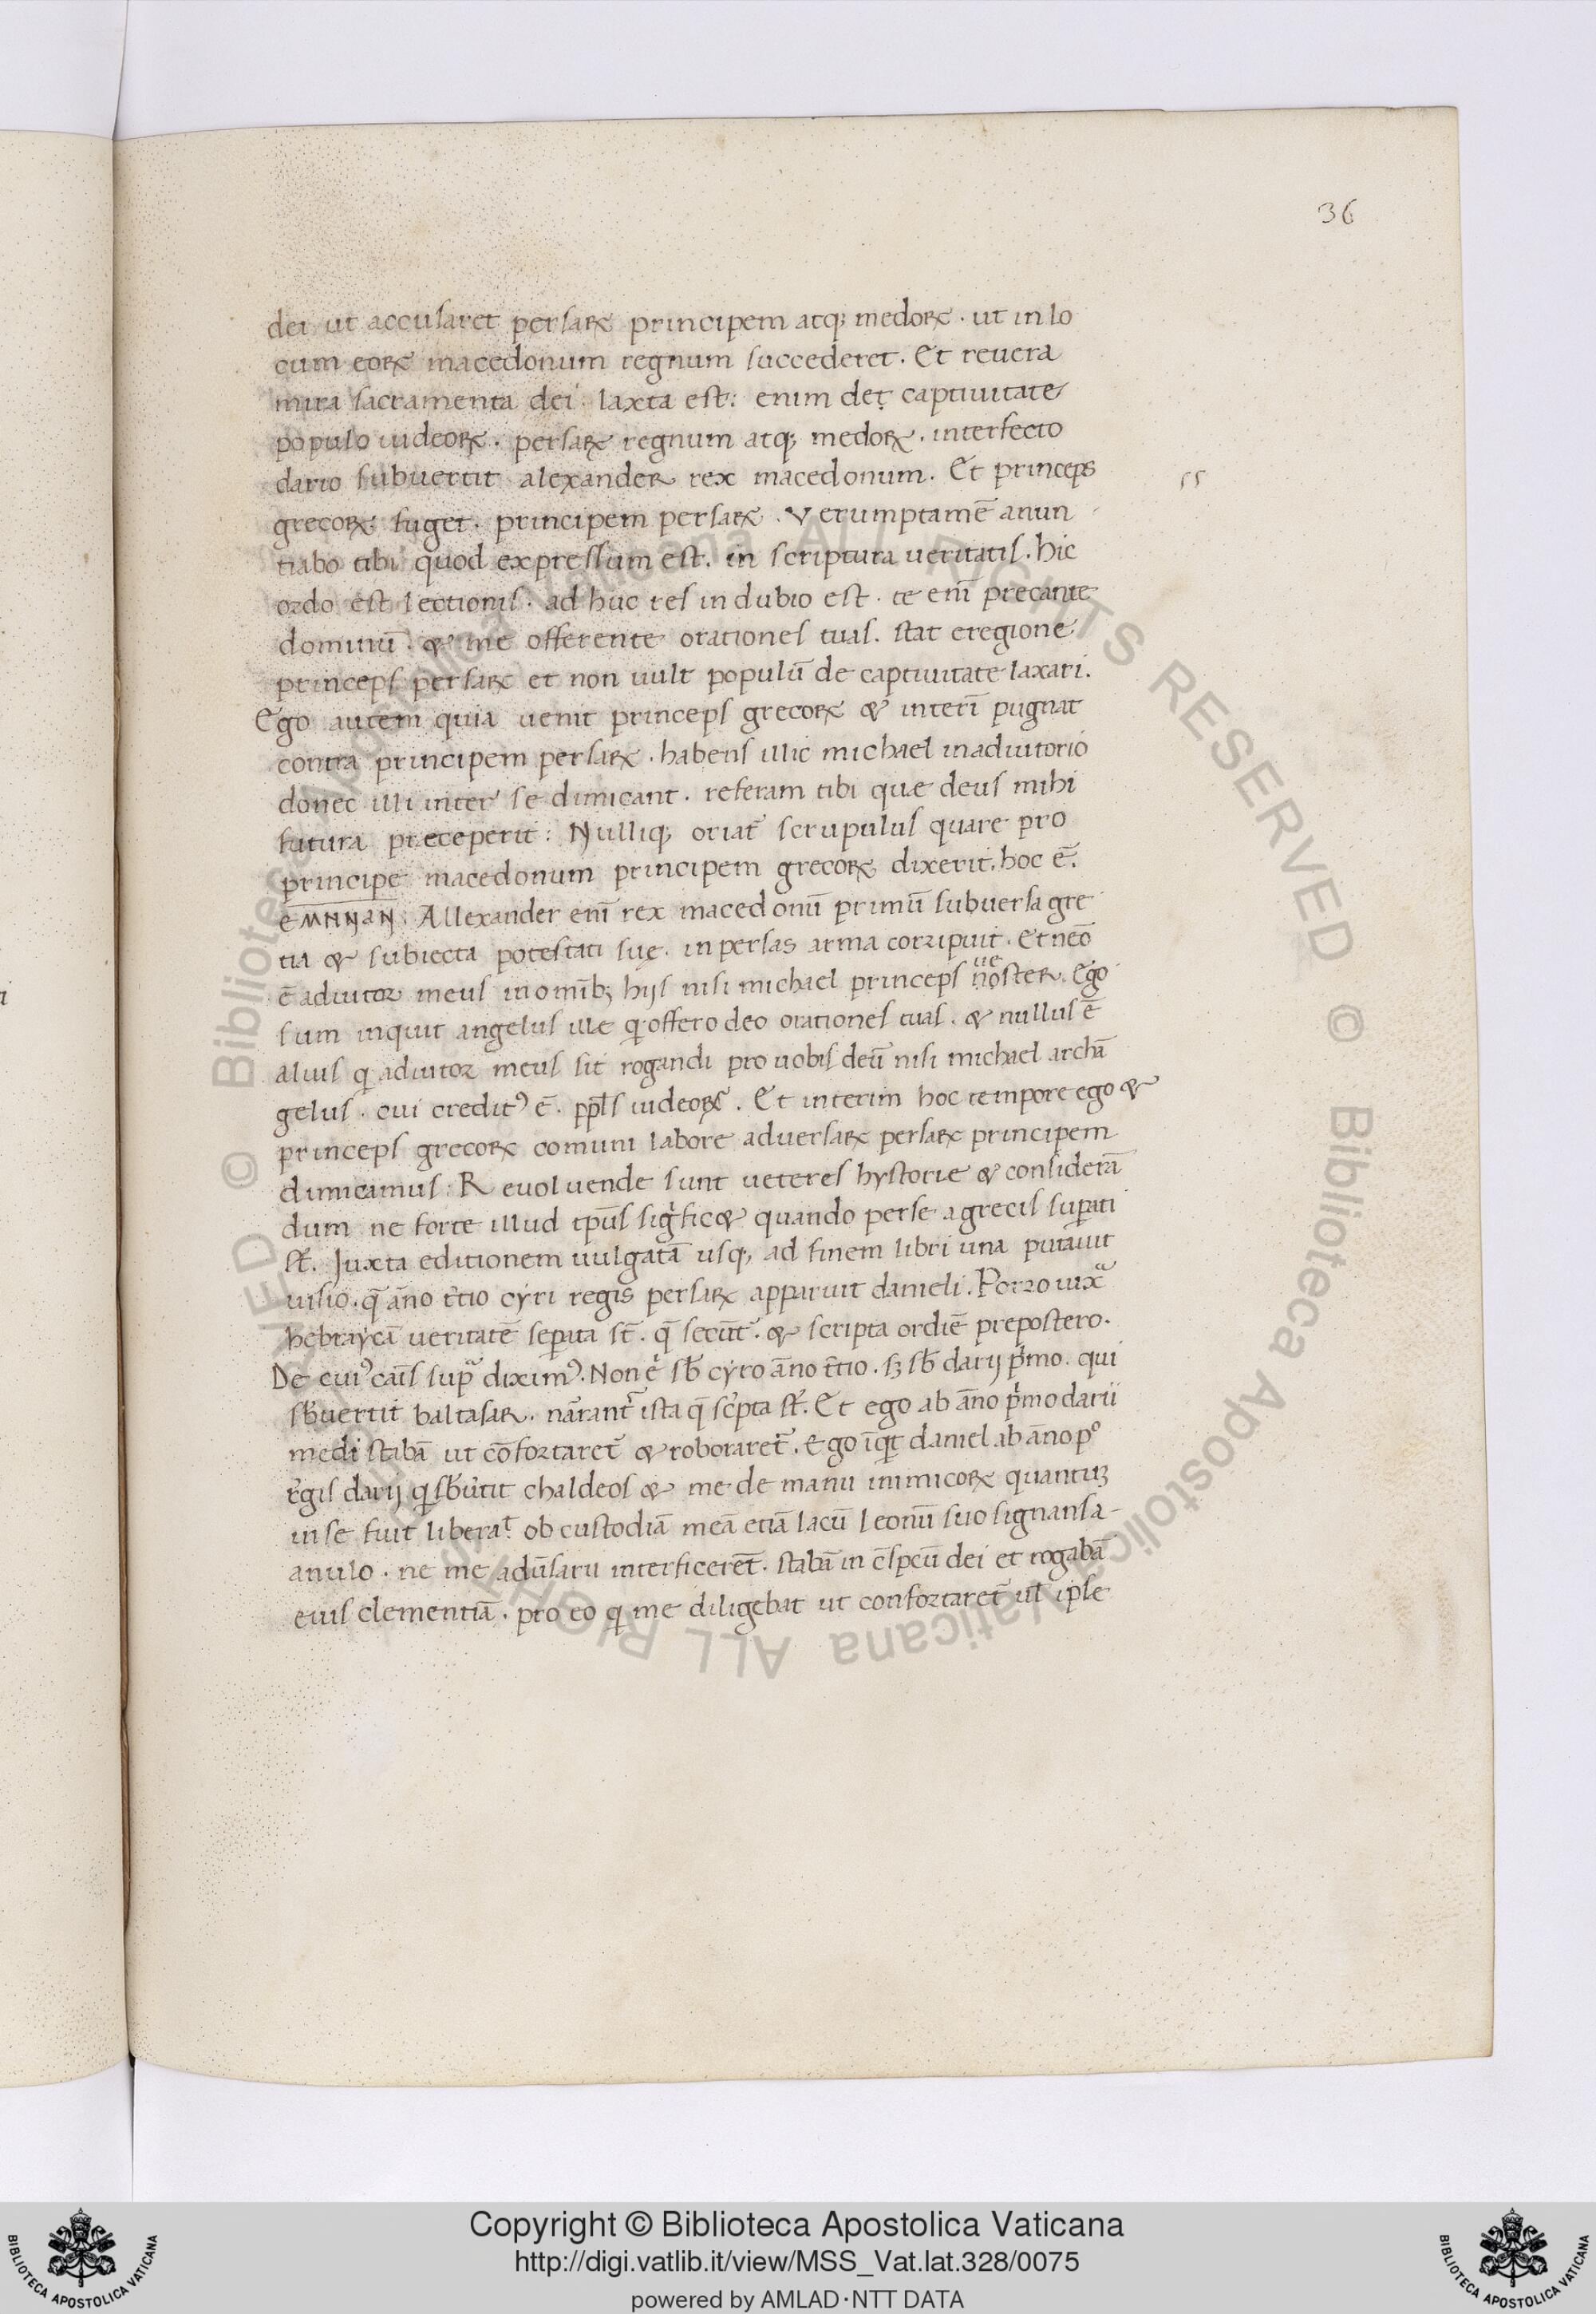 36
dei ut accusaret persaꝝ principem atq; medoꝝ . ut in lo
cum eoꝝ macedonum regnum succederet . Et reuera
mira sacramenta dei . laxta est: enim det captiuitate
populo iudeoꝝ . persaꝝ regnum atq; medoꝝ . interfecto
dario subuertit alexander rex macedonum . Et princeps
grecoꝝ fuget . principem persaꝝ . Verumptamē anun
tiabo tibi quod expressum est . in scriptura ueritatis . hic
ordo est lectionis . ad huc res in dubio est . te enī precante
dominū . & me offerente orationes tuas . stat eregione
princeps persaꝝ et non uult populū de captiuitate laxari .
Ego autem quia uenit princeps grecoꝝ & interī pugnat
contra principem persaꝝ . habens illic michael in adiutorio
donec illi inter se dimicant . referam tibi que deus mihi
futura preceperit : Nulliq; oriat̄ scrupulus quare pro
principe macedonum principem grecoꝝ dixerit . hoc ē .
Allexander enī rex macedonū primū subuersa gre
tia & subiecta potestati suę . in persas arma corripuit . Et neō
ē adiutor meus in omīb; hijs nisi michael princeps noster ue . Ego
sum inquit angelus ille qi offero deo orationes tuas . & nullus ē
alius qi adiutor meus sit rogandi pro uobis deū nisi michael archā
gelus . cui credit᾽ ē . ppl̄s iudeoꝝ . Et interim hoc tempore ego &
princeps grecoꝝ comuni labore aduersaꝝ persaꝝ principem
dimicamus : Reuoluende sunt ueteres hystorie & considerā
dum ne forte illud tpūs sigͥfic& quando perse a grecis suꝑati
st̄ . Juxta editionem uulgatā usq; ad finem libri una putauit
uisio . q̄ āno t̄tio cyri regis persaꝝ apparuit danieli . Porro iuxͣ
hebraycā ueritatē seꝑata st̄ . q̄ secūt̄ . & scripta ordiē prepostero .
De cui᾽ caīs supͣ dixim᾽ . Non eͥ sb̄ cyro āno t̄tio . sꝫ sb̄ darij pͥmo . qui
sb̄uertit baltasar . nārant̄ ista q̄ scͥpta st̄ . Et ego ab āno pͥmo darii
medi stabā ut cōfortaret̄ & roboraret̄ . Ego īqt daniel ab āno pͦ
r̄gis darij qi sb̄u̓tit chaldeos & me de manu inimicoꝝ quantuꝫ
in se fuit liberat . ob custodiā meā etiā lacū leonū suo signansa-
anulo . ne me adūsarii interficerēt . stabā in c̄spcū dei et rogabā
eius clementiā . pro eo qi me diligebat ut confortaret̄ ul̄ ipse
Copyright © Biblioteca Apostolica Vaticana
http://digi.vatlib.it/view/MSS_Vat.lat.328/0075
powered by AMLAD·NTT DATA
BIBLIOTECA APOSTOLICA VATICANA
BIBLIOTECA APOSTOLICA VATICANA
© Biblioteca Apostolica Vaticana ALL RIGHTS RESERVED © Biblioteca Apostolica Vaticana ALL RIGHTS RESERVED